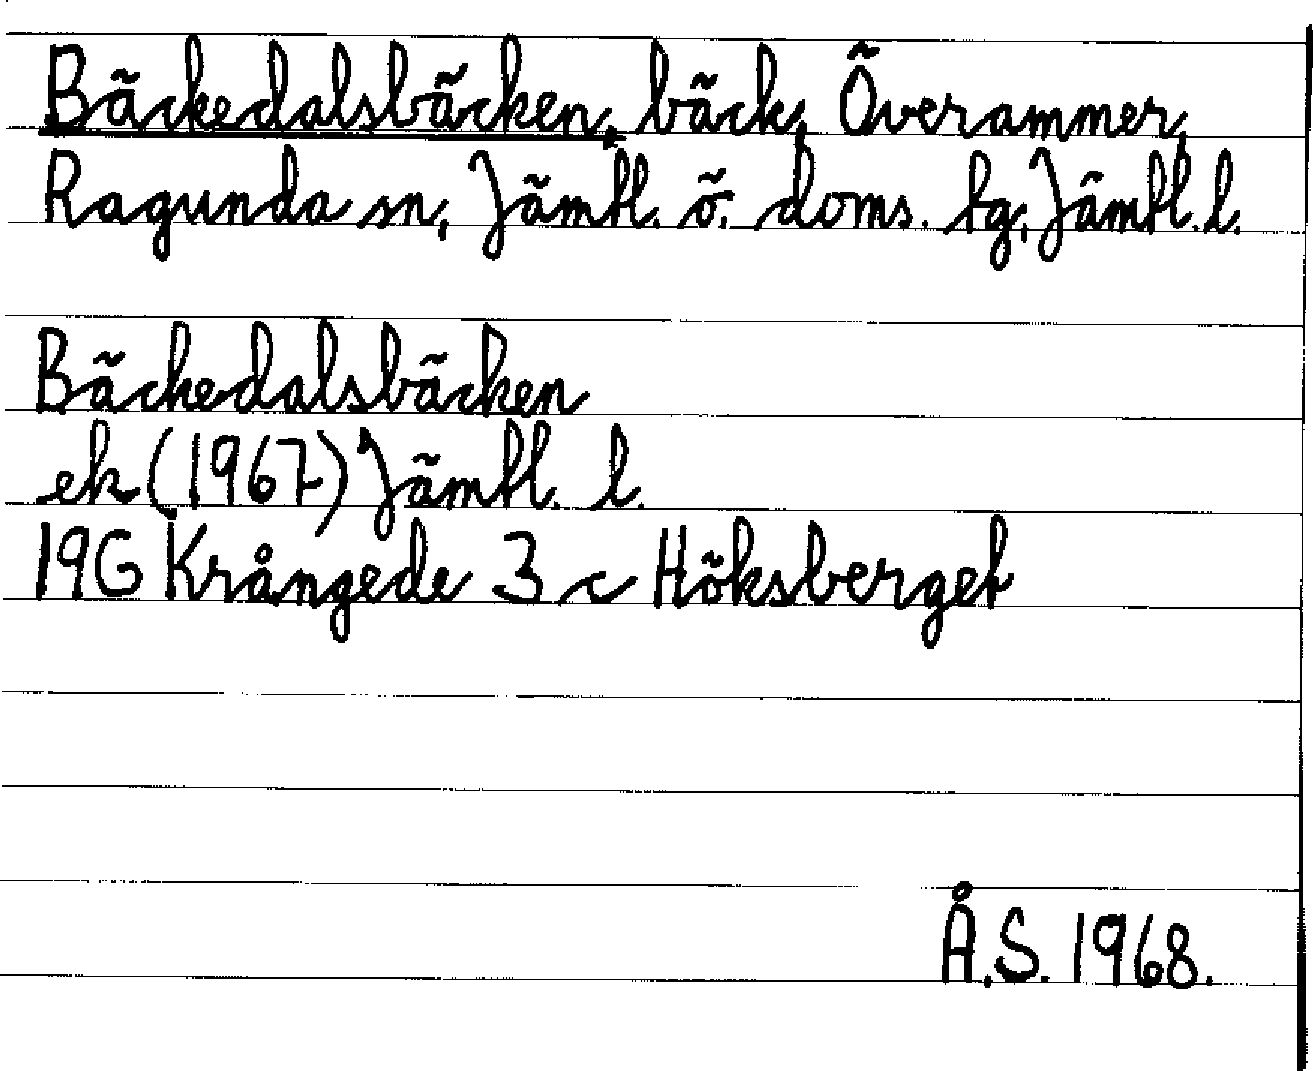 Bäckedalsbäcken, bäck, Överammer,
Ragunda sn, Jämtl. ö. doms. tg, Jämtl. l.
Bäckedalsbäcken
ek (1967) Jämtl. l.
19G Krångede 3 c Höksberget
Å.S. 1968.